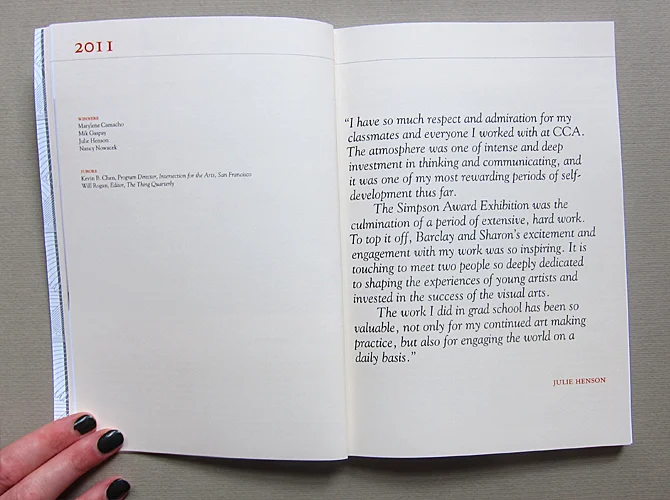 2011
WINNERS
Marylene Camacho
Mik Gaspay
Julie Henson
Nancy Nowacek
JURORS
Kevin B. Chen, Program Director, Intersection for the Arts, San Francisco
Will Rogan, Editor, The Thing Quarterly
“I have so much respect and admiration for my
classmates and everyone I worked with at CCA.
The atmosphere was one of intense and deep
investment in thinking and communicating, and
it was one of my most rewarding periods of self-
development thus far.
The Simpson Award Exhibition was the
culmination of a period of extensive, hard work.
To top it off, Barclay and Sharon’s excitement and
engagement with my work was so inspiring. It is
touching to meet two people so deeply dedicated
to shaping the experiences of young artists and
invested in the success of the visual arts.
The work I did in grad school has been so
valuable, not only for my continued art making
practice, but also for engaging the world on a
daily basis.”
JULIE HENSON